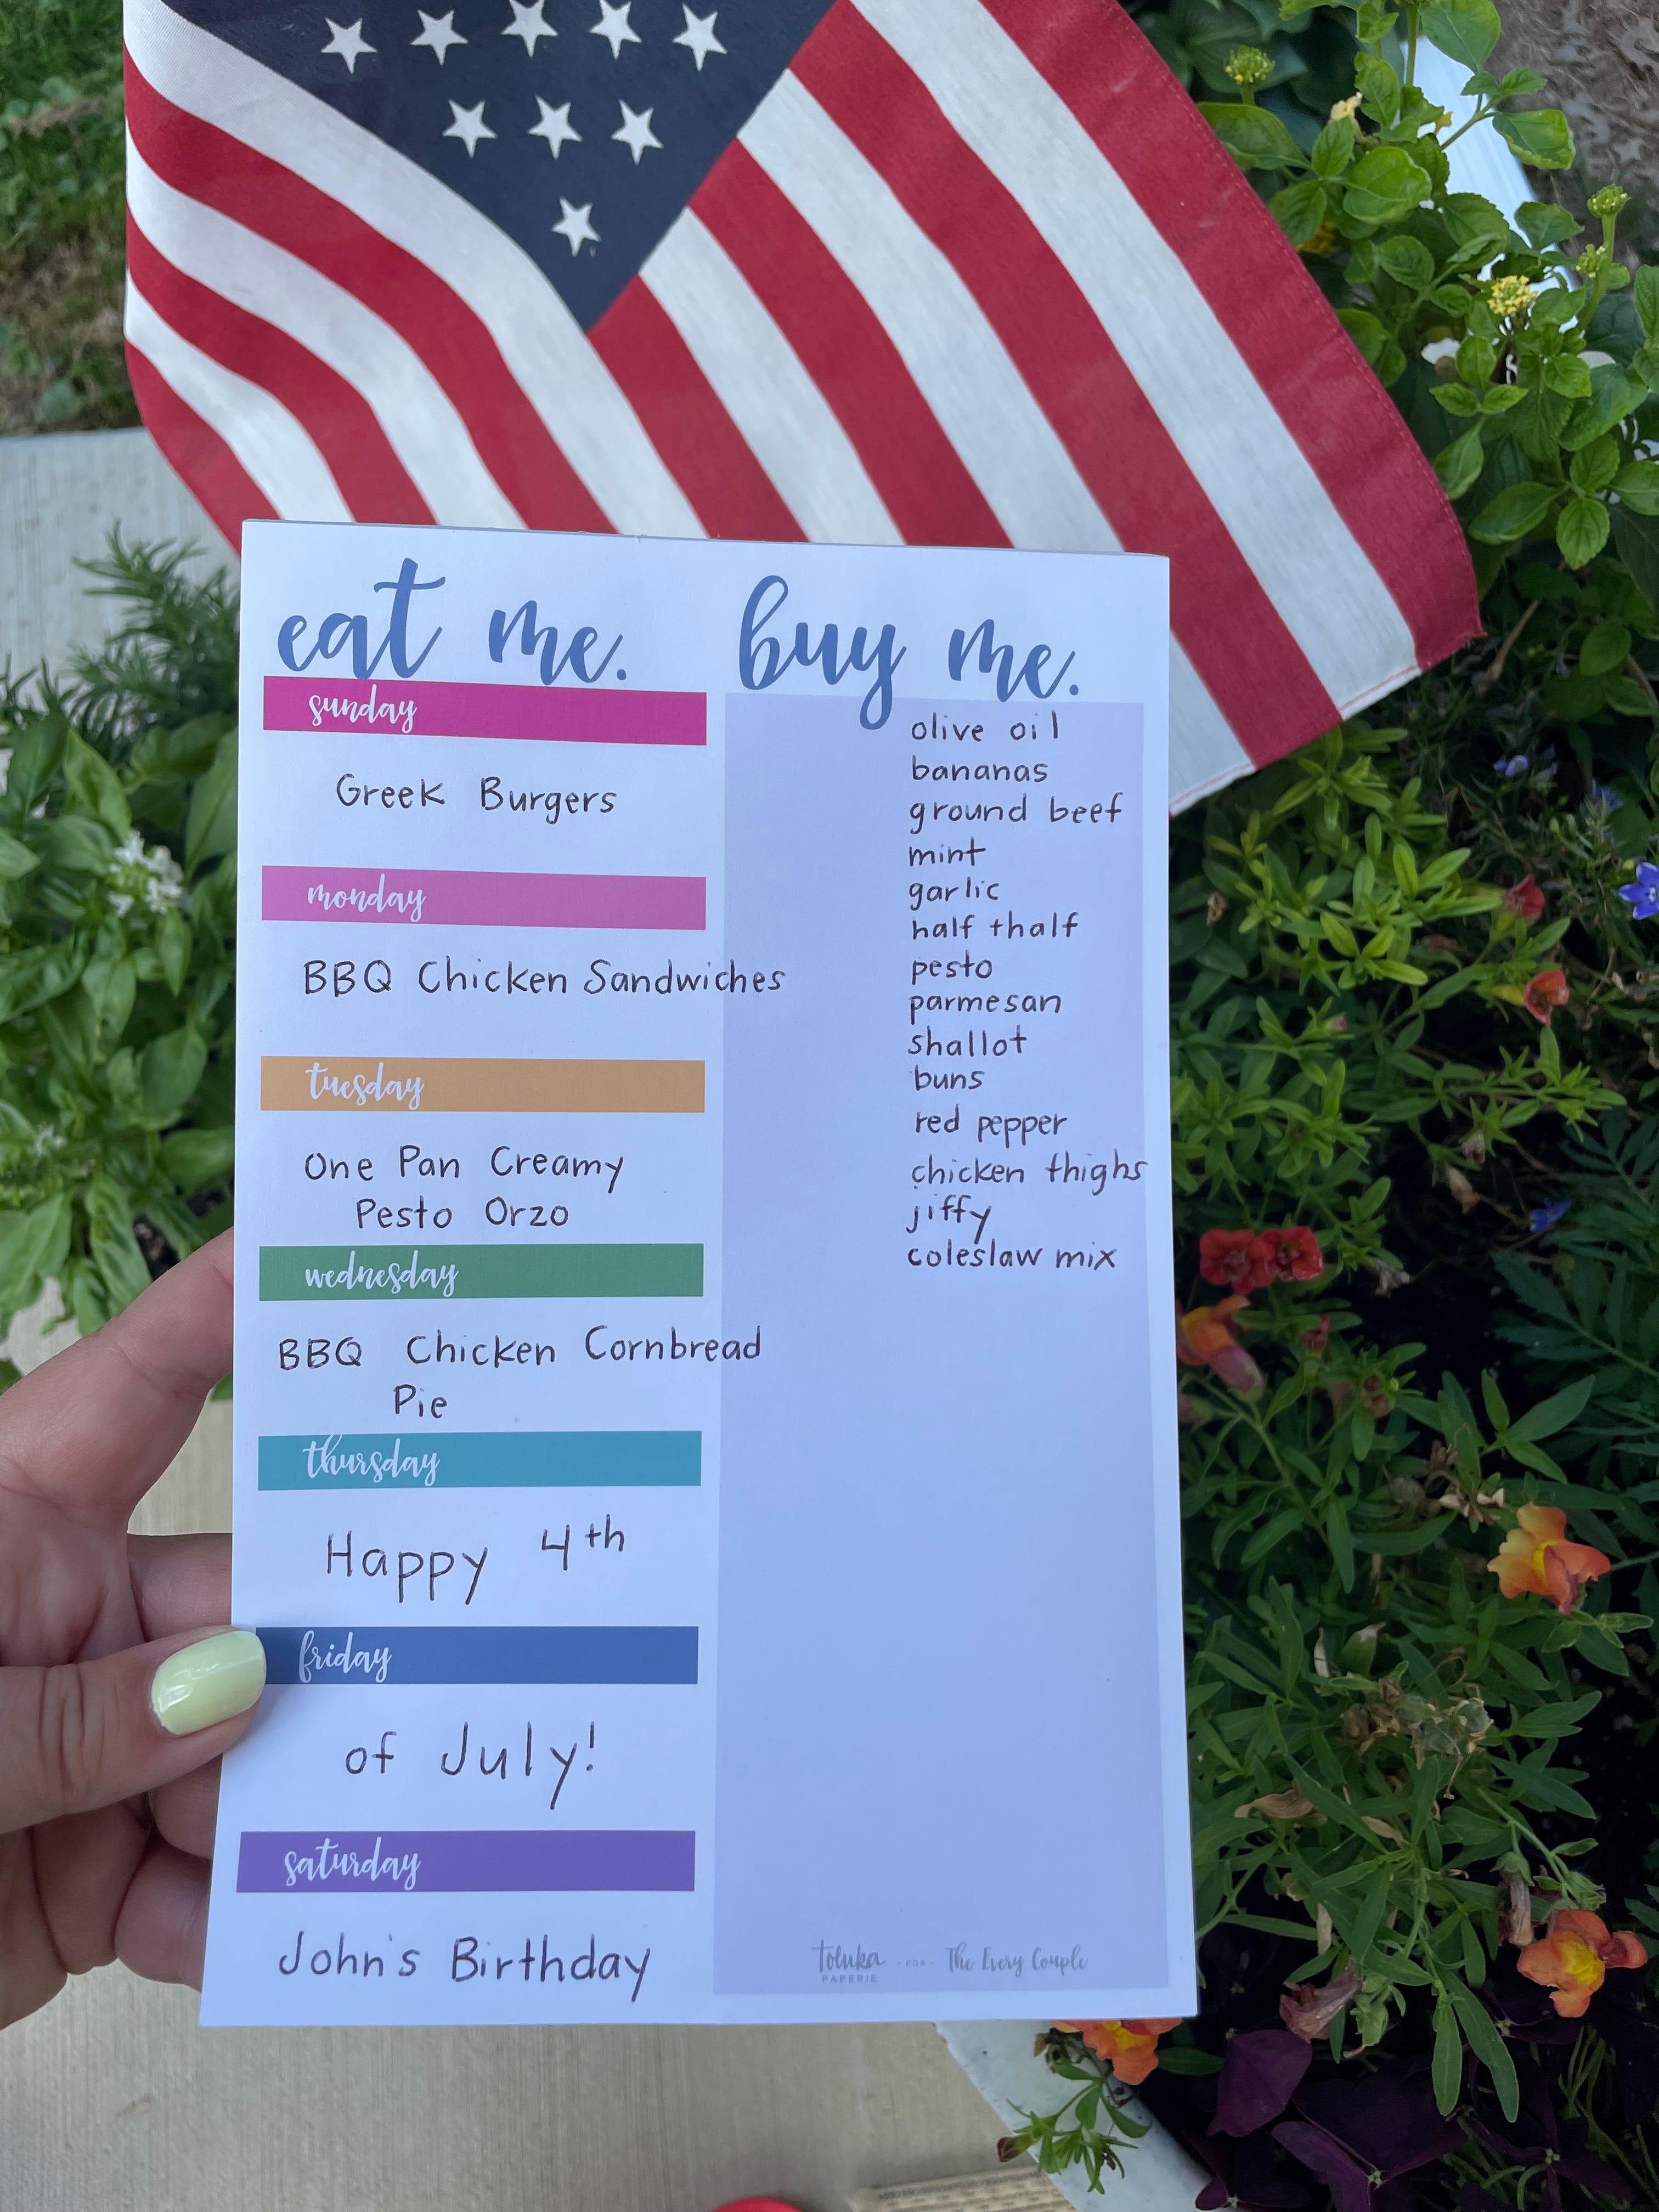 eat me.
sunday
Greek Burgers
monday
BBQ Chicken Sandwiches
tuesday
One Pan Creamy
Pesto Orzo
wednesday
BBQ Chicken Cornbread
Pie
thursday
Happy 4th
friday
of July!
saturday
John's Birthday
buy me.
olive oil
bananas
ground beef
mint
garlic
half + half
pesto
parmesan
shallot
buns
red pepper
chicken thighs
jiffy
coleslaw mix
toluka PAPERIE · FOR · The Every Couple